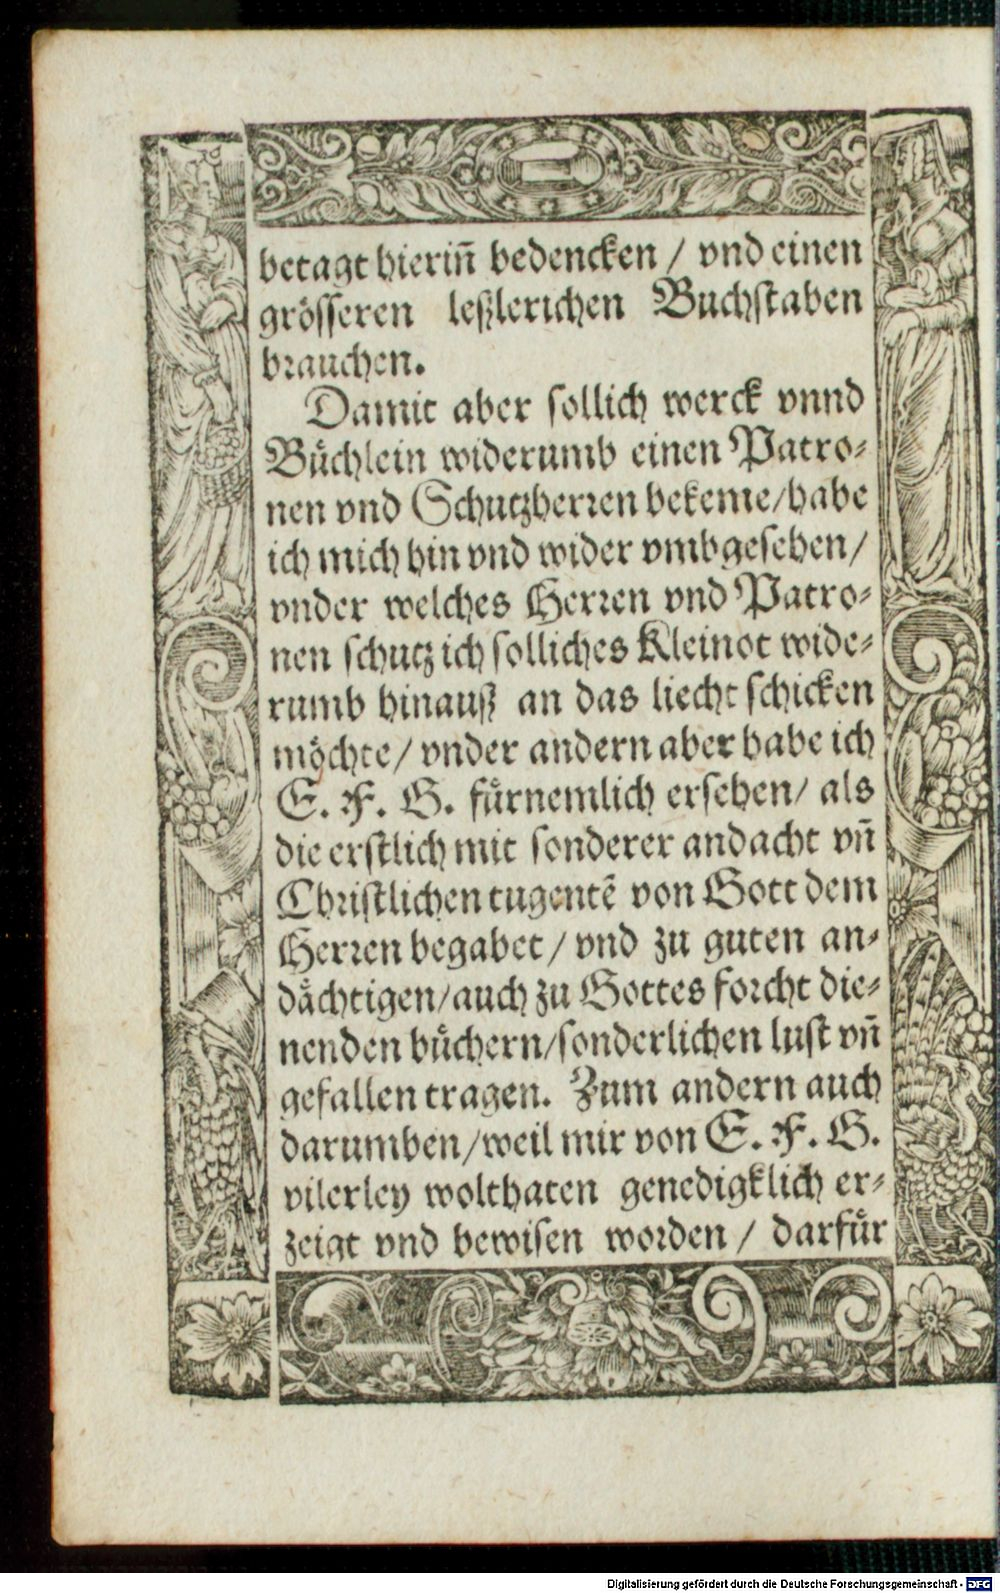 betagt hieriñ bedencken / vnd einen
grösseren leßlerichen Buchstaben
brauchen.
Damit aber sollich werck vnnd
Bůchlein widerumb einen Patro⸗
nen vnd Schutzherꝛen bekeme/habe
ich mich hin vnd wider vmbgesehen/
vnder welches Herꝛen vnd Patro⸗
nen schutz ich solliches Kleinot wide⸗
rumb hinauß an das liecht schicken
möchte/ vnder andern aber habe ich
E. F. G. fürnemlich ersehen/ als
die erstlich mit sonderer andacht vñ
Chꝛistlichen tugentẽ von Gott dem
Herꝛen begabet/ vnd zu guten an⸗
dächtigen/auch zu Gottes foꝛcht die⸗
nenden bůchern/sonderlichen lust vñ
gefallen tragen. Zum andern auch
darumben/weil mir von E. F. G.
vilerley wolthaten genedigklich er⸗
zeigt vnd bewisen woꝛden / darfür
Digitalisierung gefördert durch die Deutsche Forschungsgemeinschaft - DFG